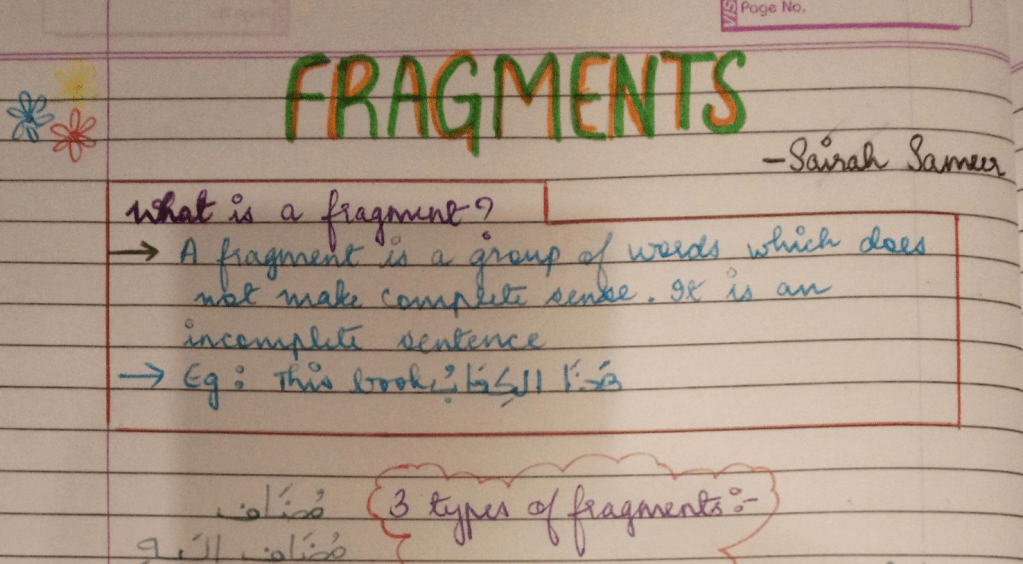 VIS
Page No.
FRAGMENTS
-Sairah Sameer
What is a fragment?
→ A fragment is a group of words which does
not make complete sense. It is an
incomplete sentence
→ Eg: This book, هَذَا الكِتَابُ
مُضَاف
3 types of fragments:-
مُضَاف اليه